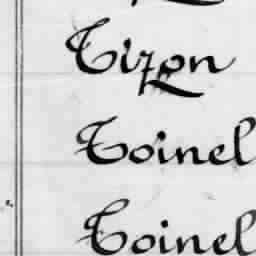 Tizon
Toinel
Toinel